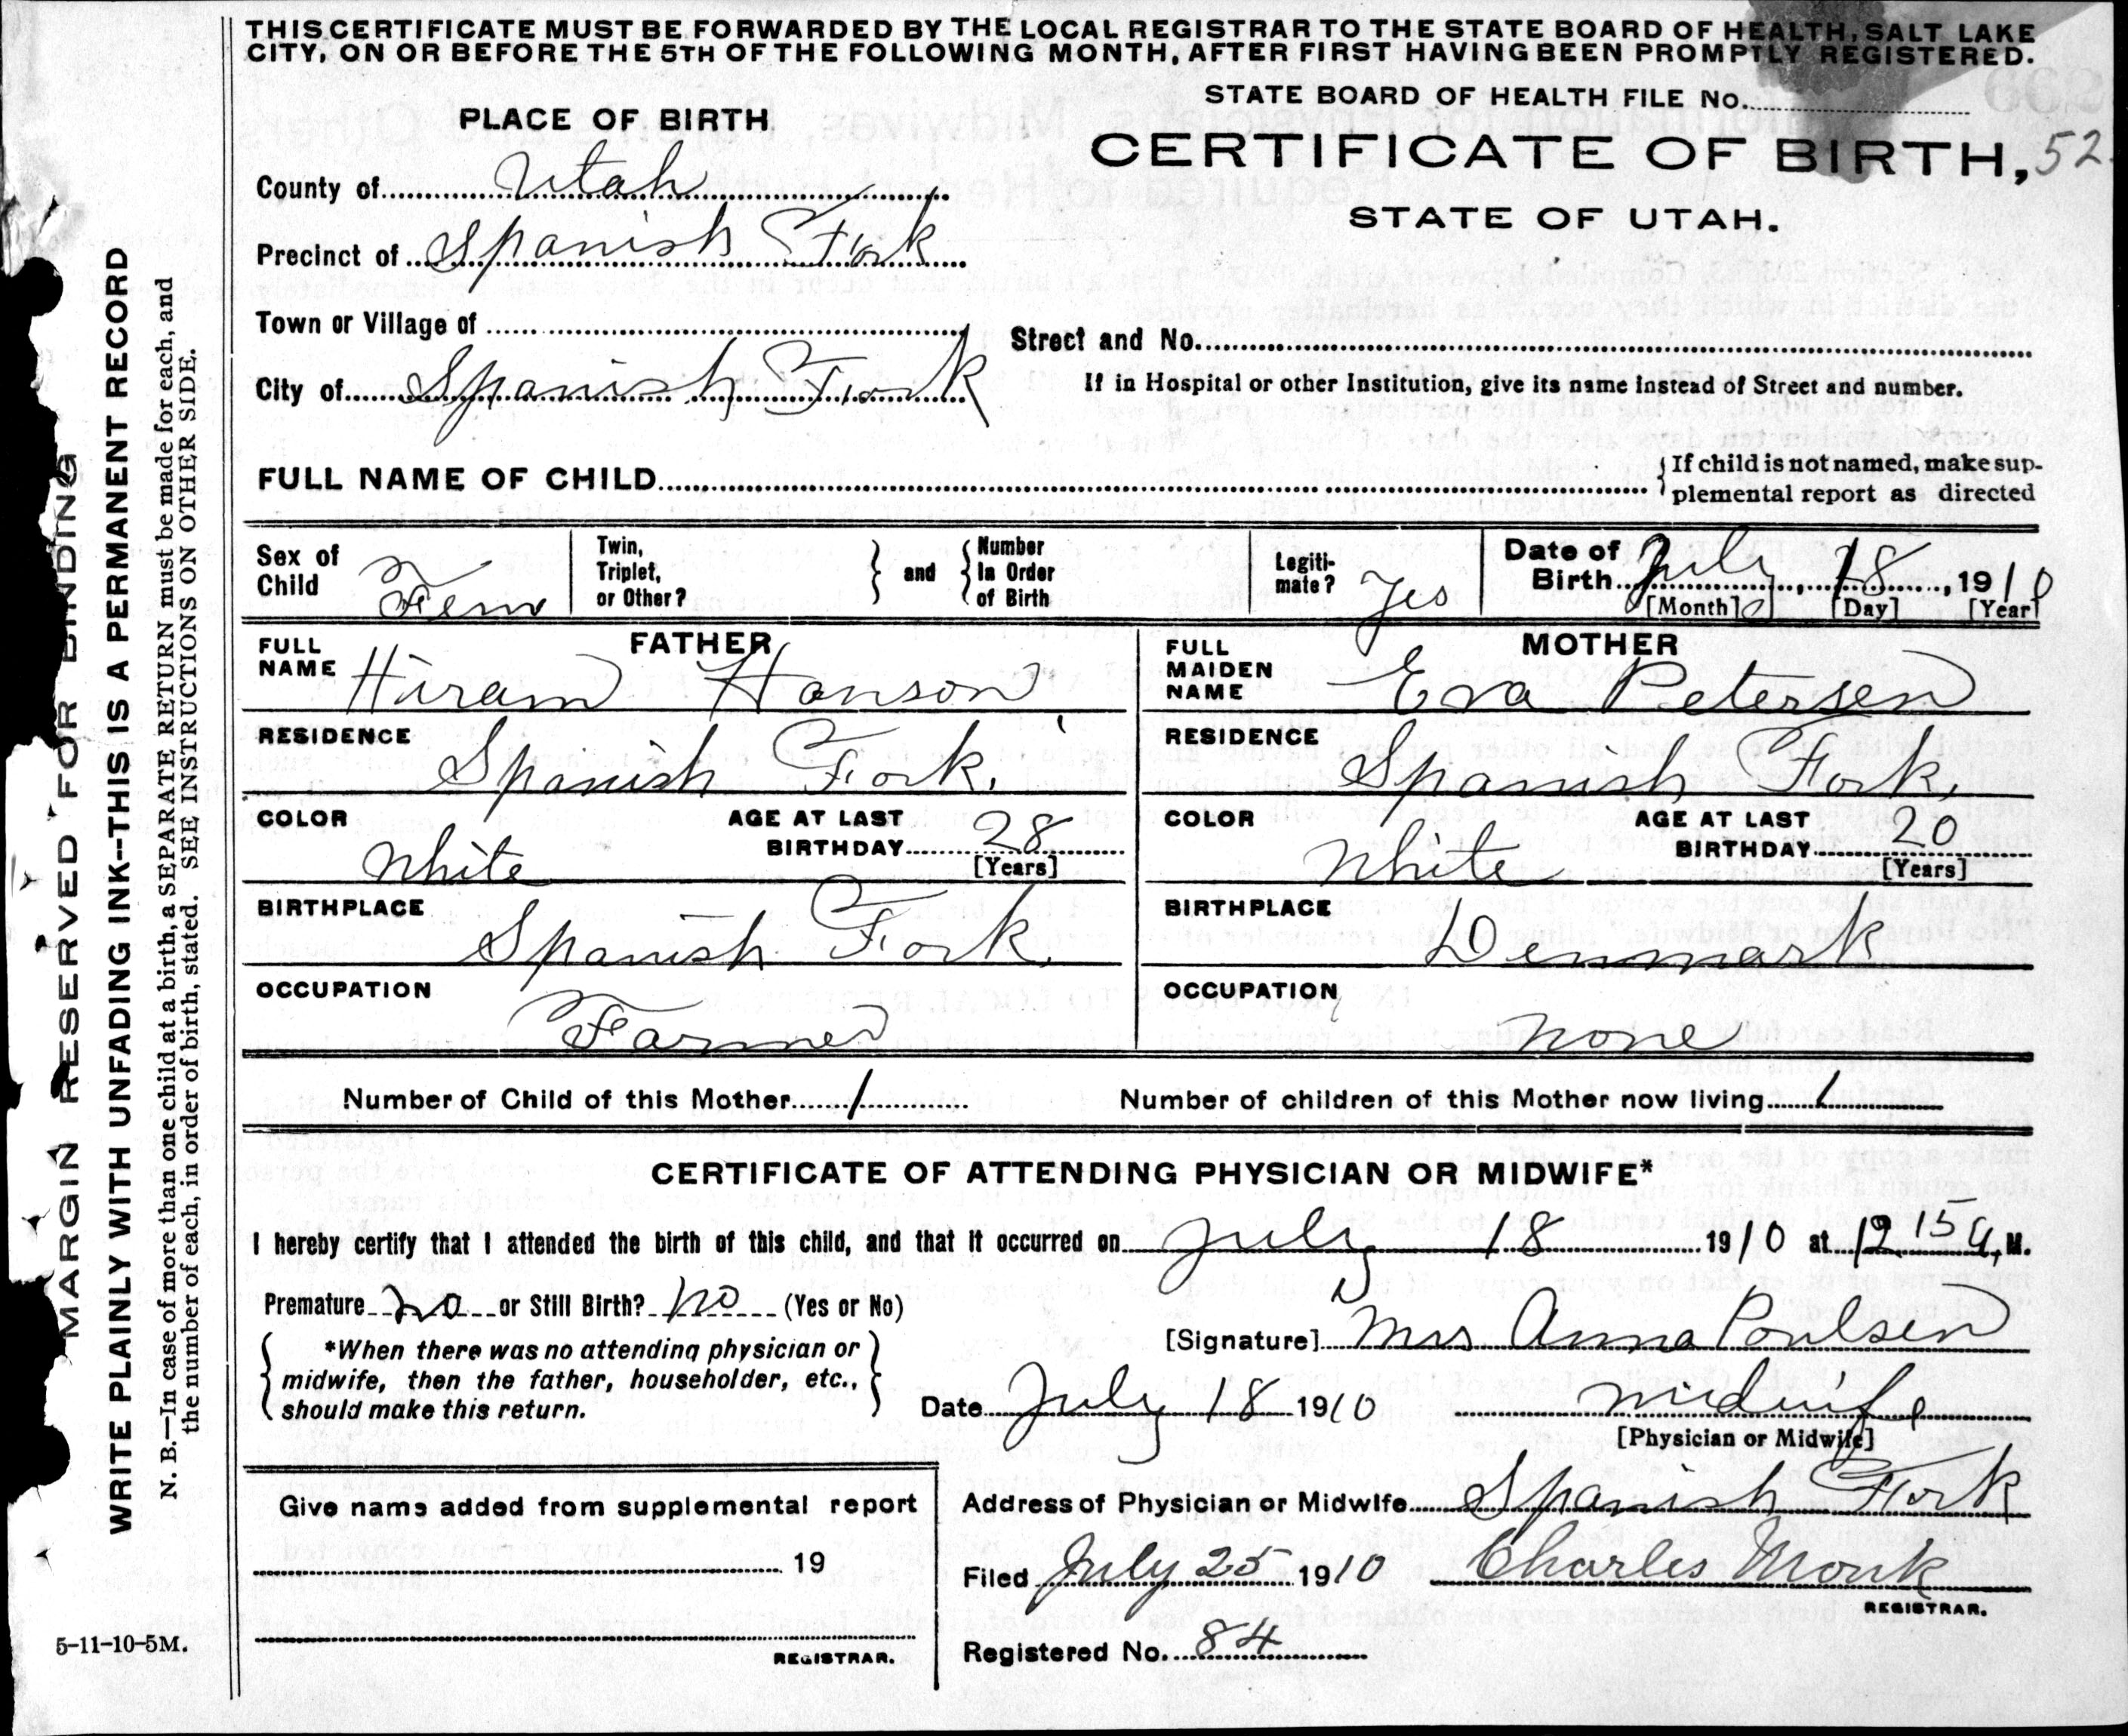 THIS CERTIFICATE MUST BE FORWARDED BY THE LOCAL REGISTRAR TO THE STATE BOARD OF HEALTH, SALT LAKE
CITY, ON OR BEFORE THE 5TH OF THE FOLLOWING MONTH, AFTER FIRST HAVING BEEN PROMPTLY REGISTERED.
STATE BOARD OF HEALTH FILE No.
PLACE OF BIRTH
CERTIFICATE OF BIRTH, 52
STATE OF UTAH.
County of Utah
Precinct of Spanish Fork
Town or Village of
Street and No.
City of Spanish Fork
If in Hospital or other Institution, give its name instead of Street and number.
FULL NAME OF CHILD
If child is not named, make sup-
plemental report as directed
Sex of Child Fem
Twin, Triplet, or Other?
and
Number In Order of Birth
Legiti-mate? Yes
Date of Birth July 18, 1910
[Month] [Day] [Year]
FATHER
FULL NAME Hiram Hanson
RESIDENCE Spanish Fork.
COLOR White
AGE AT LAST BIRTHDAY 28 [Years]
BIRTHPLACE Spanish Fork.
OCCUPATION Farmer
MOTHER
FULL MAIDEN NAME Eva Petersen
RESIDENCE Spanish Fork.
COLOR White
AGE AT LAST BIRTHDAY 20 [Years]
BIRTHPLACE Denmark
OCCUPATION none
Number of Child of this Mother 1 Number of children of this Mother now living 1
CERTIFICATE OF ATTENDING PHYSICIAN OR MIDWIFE*
I hereby certify that I attended the birth of this child, and that it occurred on July 18 1910 at 12 15 a, M.
Premature no or Still Birth? no (Yes or No)
[Signature] Mrs Anna Poulsen
*When there was no attending physician or
midwife, then the father, householder, etc.,
should make this return.
Date July 18 1910 midwife
[Physician or Midwife]
Give names added from supplemental report
19
REGISTRAR.
Address of Physician or Midwife Spanish Fork
Filed July 25 1910 Charles Monk
REGISTRAR.
Registered No. 84
5-11-10-5M.
MARGIN RESERVED FOR BINDING
WRITE PLAINLY WITH UNFADING INK--THIS IS A PERMANENT RECORD
N. B.—In case of more than one child at a birth, a SEPARATE RETURN must be made for each, and
the number of each, in order of birth, stated. SEE INSTRUCTIONS ON OTHER SIDE.